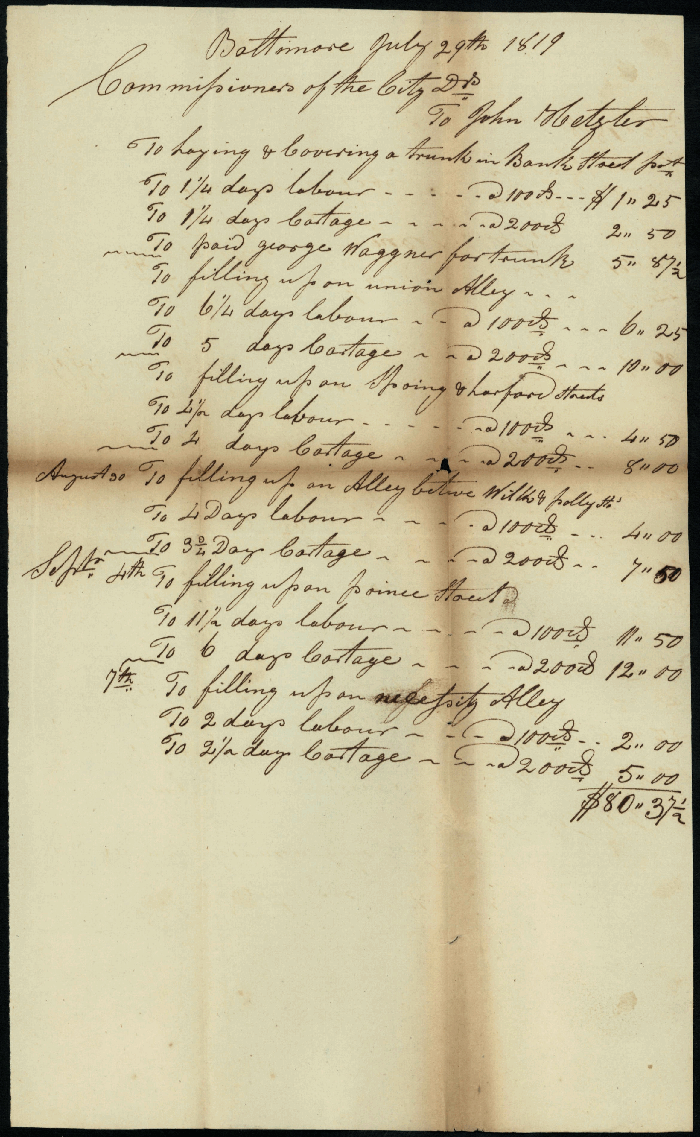 Baltimore July 29th 1819
Commissioners of the City Drs
To John Hetzler
To Laying & Covering a trunk in Bank Street
To 1 1/4 days labour - - - - - @ 100cts - - - $ 1" 25
To 1 1/4 days Cartage - - - - - @ 200cts 2" 50
To paid george Waggner for trunk 5" 87 1/2
To filling up on union Alley - - -
To 6 1/4 days labour - - @ 100cts - - - 6" 25
To 5 days Cartage - - @ 200cts - - - 10" 00
To filling up on Spring & harford Streets
To 4 1/2 days labour - - - - - @ 100cts - - - 4" 50
To 4 days Cartage - - - - @ 200cts - - 8" 00
August 30 To filling up an Alley betwe Wilk & polly Sts
To 4 Days labour - - - - @ 100cts - - - 4" 00
To 3 3/4 Days Cartage - - - - @ 200cts - - 7" 50
Septr 4th To filling up on prince Street
To 11 1/2 days labour - - - - @ 100cts 11" 50
To 6 days Cartage - - - - @ 200cts 12" 00
7th To filling up on necessity Alley
To 2 days labour - - - - @ 100cts - - 2" 00
To 2 1/2 days Cartage - - - @ 200cts 5" 00
$80" 37 1/2